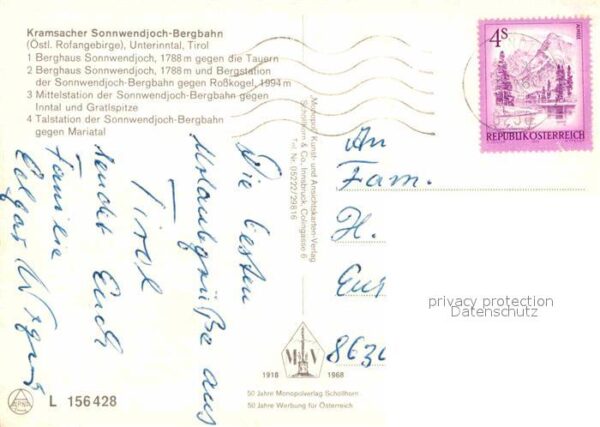 Kramsacher Sonnwendjoch-Bergbahn
(Östl. Rofangebirge), Unterinntal, Tirol
1 Berghaus Sonnwendjoch, 1788 m gegen die Tauern
2 Berghaus Sonnwendjoch, 1788 m und Bergstation
der Sonnwendjoch-Bergbahn gegen Roßkogel, 1994 m
3 Mittelstation der Sonnwendjoch-Bergbahn gegen
Inntal und Gratlspitze
4 Talstation der Sonnwendjoch-Bergbahn
gegen Mariatal
Die besten
Urlaubsgrüße aus
Tirol
sendet Euch
Familie
Monopol Kunst- und Ansichtskarten-Verlag
Schöllhorn & Co., Innsbruck, Colingasse 6
Tel. Nr. 05222/29816
4S
ALMSEE
REPUBLIK ÖSTERREICH
An
Fam.
H.
863
privacy protection
Datenschutz
M V
1918 1968
50 Jahre Monopolverlag Schöllhorn
50 Jahre Werbung für Österreich
L 156428